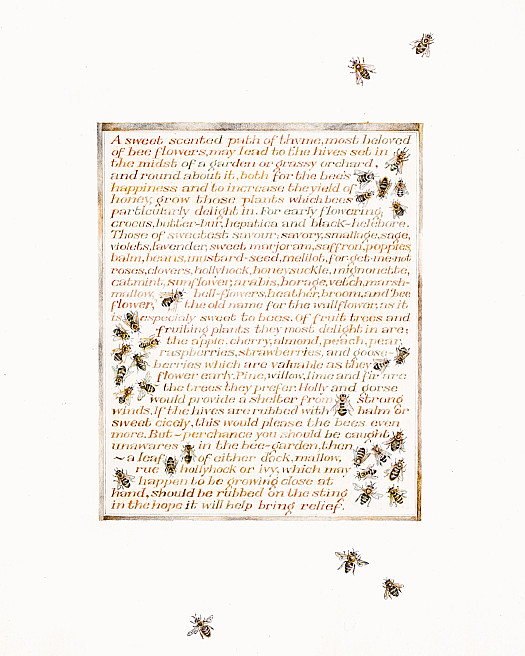 A sweet scented path of thyme, most beloved
of bee flowers, may lead to the hives set in
the midst of a garden or grassy orchard,
and round about it, both for the bee's
happiness and to increase the yield of
honey, grow those plants which bees
particularly delight in. For early flowering
crocus, butter-bur, hepatica and black-helebore.
Those of sweetest savour: savory, smallage, sage,
violets, lavender, sweet marjoram, saffron, poppies,
balm, beans, mustard-seed, melilot, for-get-me-not
roses, clovers, hollyhock, honeysuckle, mignonette,
catmint, sunflower, arabis, borage, vetch, marsh-
mallow, bell-flowers, heather, broom, and bee
flower, the old name for the wallflower, as it
is especialy sweet to bees. Of fruit trees and
fruiting plants they most delight in are;
the apple, cherry, almond, peach, pear,
raspberries, strawberries, and goose-
berries which are valuable as they
flower early. Pine, willow, lime and fir are
the trees they prefer. Holly and gorse
would provide a shelter from strong
winds. If the hives are rubbed with balm or
sweet cicely, this would please the bees even
more. But ~ perchance you should be caught
unawares in the bee-garden, then
~ a leaf of either dock, mallow,
rue hollyhock or ivy, which may
happen to be growing close at
hand, should be rubbed on the sting
in the hope it will help bring relief.